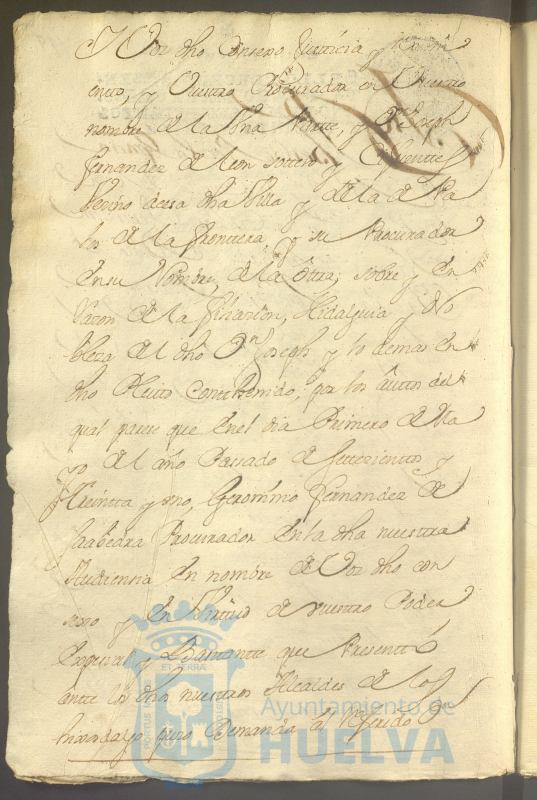 Vos dho Consexo Justicia y
ento, y Vuestro Procurador en Vuestro
nombre de la Vna Partte, y Dn Joseph
Fernandez de leon sottero y Cifuenttes
Vecino de esa dha Villa y de la de Pa
los de la fronttera, y su Procurador
en su Nombre, de la ôtra; sobre y en
Razon de la filiazion, Hidalguia y No
bleza del dho Dn Joseph y lo demas en
dho Pleito Conthenido, por los âuttos del
qual pareze que en el dia Primero de Ma
yo del año Passado de settezienttos y
ttreintta y uno, Geronimo Fernandez de
Saabedra Procurador en la dha nuestra
Audiencia en nombre de Vos dho con
sexo y en Virtud de vuestro Poder
Especial y Basttantte que Presenttó
antte los dhos nuestros Alcaldes de los
hixosdalgo puso Demanda al referido Dn
PORTUS
ET TERRAE
Ayuntamiento de
HUELVA